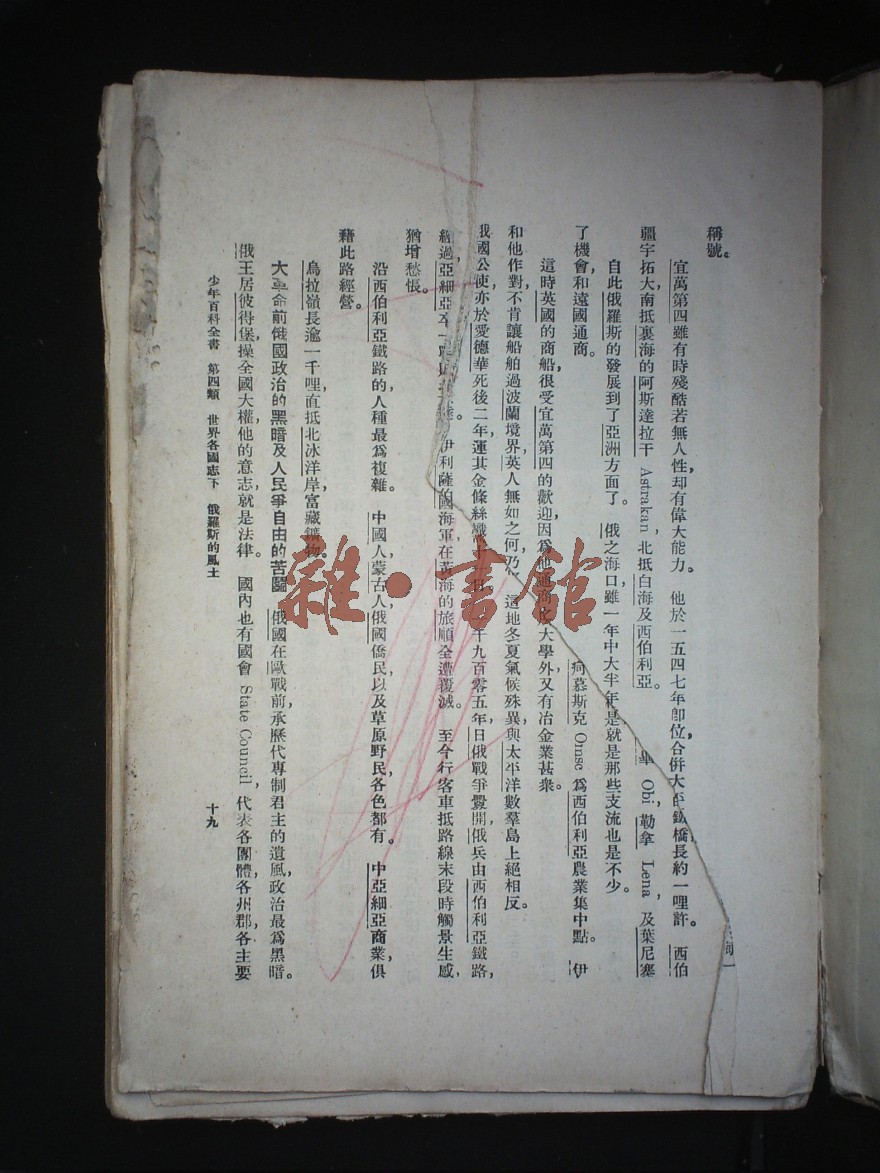 稱號。
宜萬第四雖有時殘酷若無人性,却有偉大能力。 他於一五四七年卽位,合併大 鐵橋長約一哩許。 西伯
疆宇拓大,南抵裏海的阿斯達拉干 Astrakan, 北抵白海及西伯利亞。 畢 Obi, 勒拿 Lena, 及葉尼塞
自此俄羅斯的發展到了亞洲方面了。 俄之海口,雖一年中大半年 是,就是那些支流也是不少。
了機會,和遠國通商。 柯慕斯克 Omsc 爲西伯利亞農業集中點。 伊
這時英國的商船很受宜萬第四的歡迎,因爲他通商 大學外,又有冶金業甚衆。
和他作對,不肯讓船舶過波蘭境界,英人無如之何,乃 這地冬夏氣候殊異,與太平洋數羣島上絕相反。
我國公使,亦於愛德華死後二年,運其金條絲織 千九百零五年,日俄戰爭釁開,俄兵由西伯利亞鐵路,
經過亞細亞 伊利薩伯 國海軍在黃海的旅順全遭覆滅。 至今行客車抵路線末段時,觸景生感,
猶增愁悵。
沿西伯利亞鐵路的人種最爲複雜。 中國人,蒙古人,俄國僑民,以及草原野民,各色都有。 中亞細亞商業,俱
藉此路經營。
烏拉嶺長逾一千哩,直抵北冰洋岸,富藏鑛物。
大革命前俄國政治的黑暗及人民爭自由的苦鬭 俄國在歐戰前,承歷代專制君主的遺風,政治最爲黑暗。
俄王居彼得堡,操全國大權,他的意志,就是法律。 國內也有國會 State Council, 代表各團體,各州郡,各主要
少年百科全書 第四類 世界各國志下 俄羅斯的風土 十九
雜·書館
海一